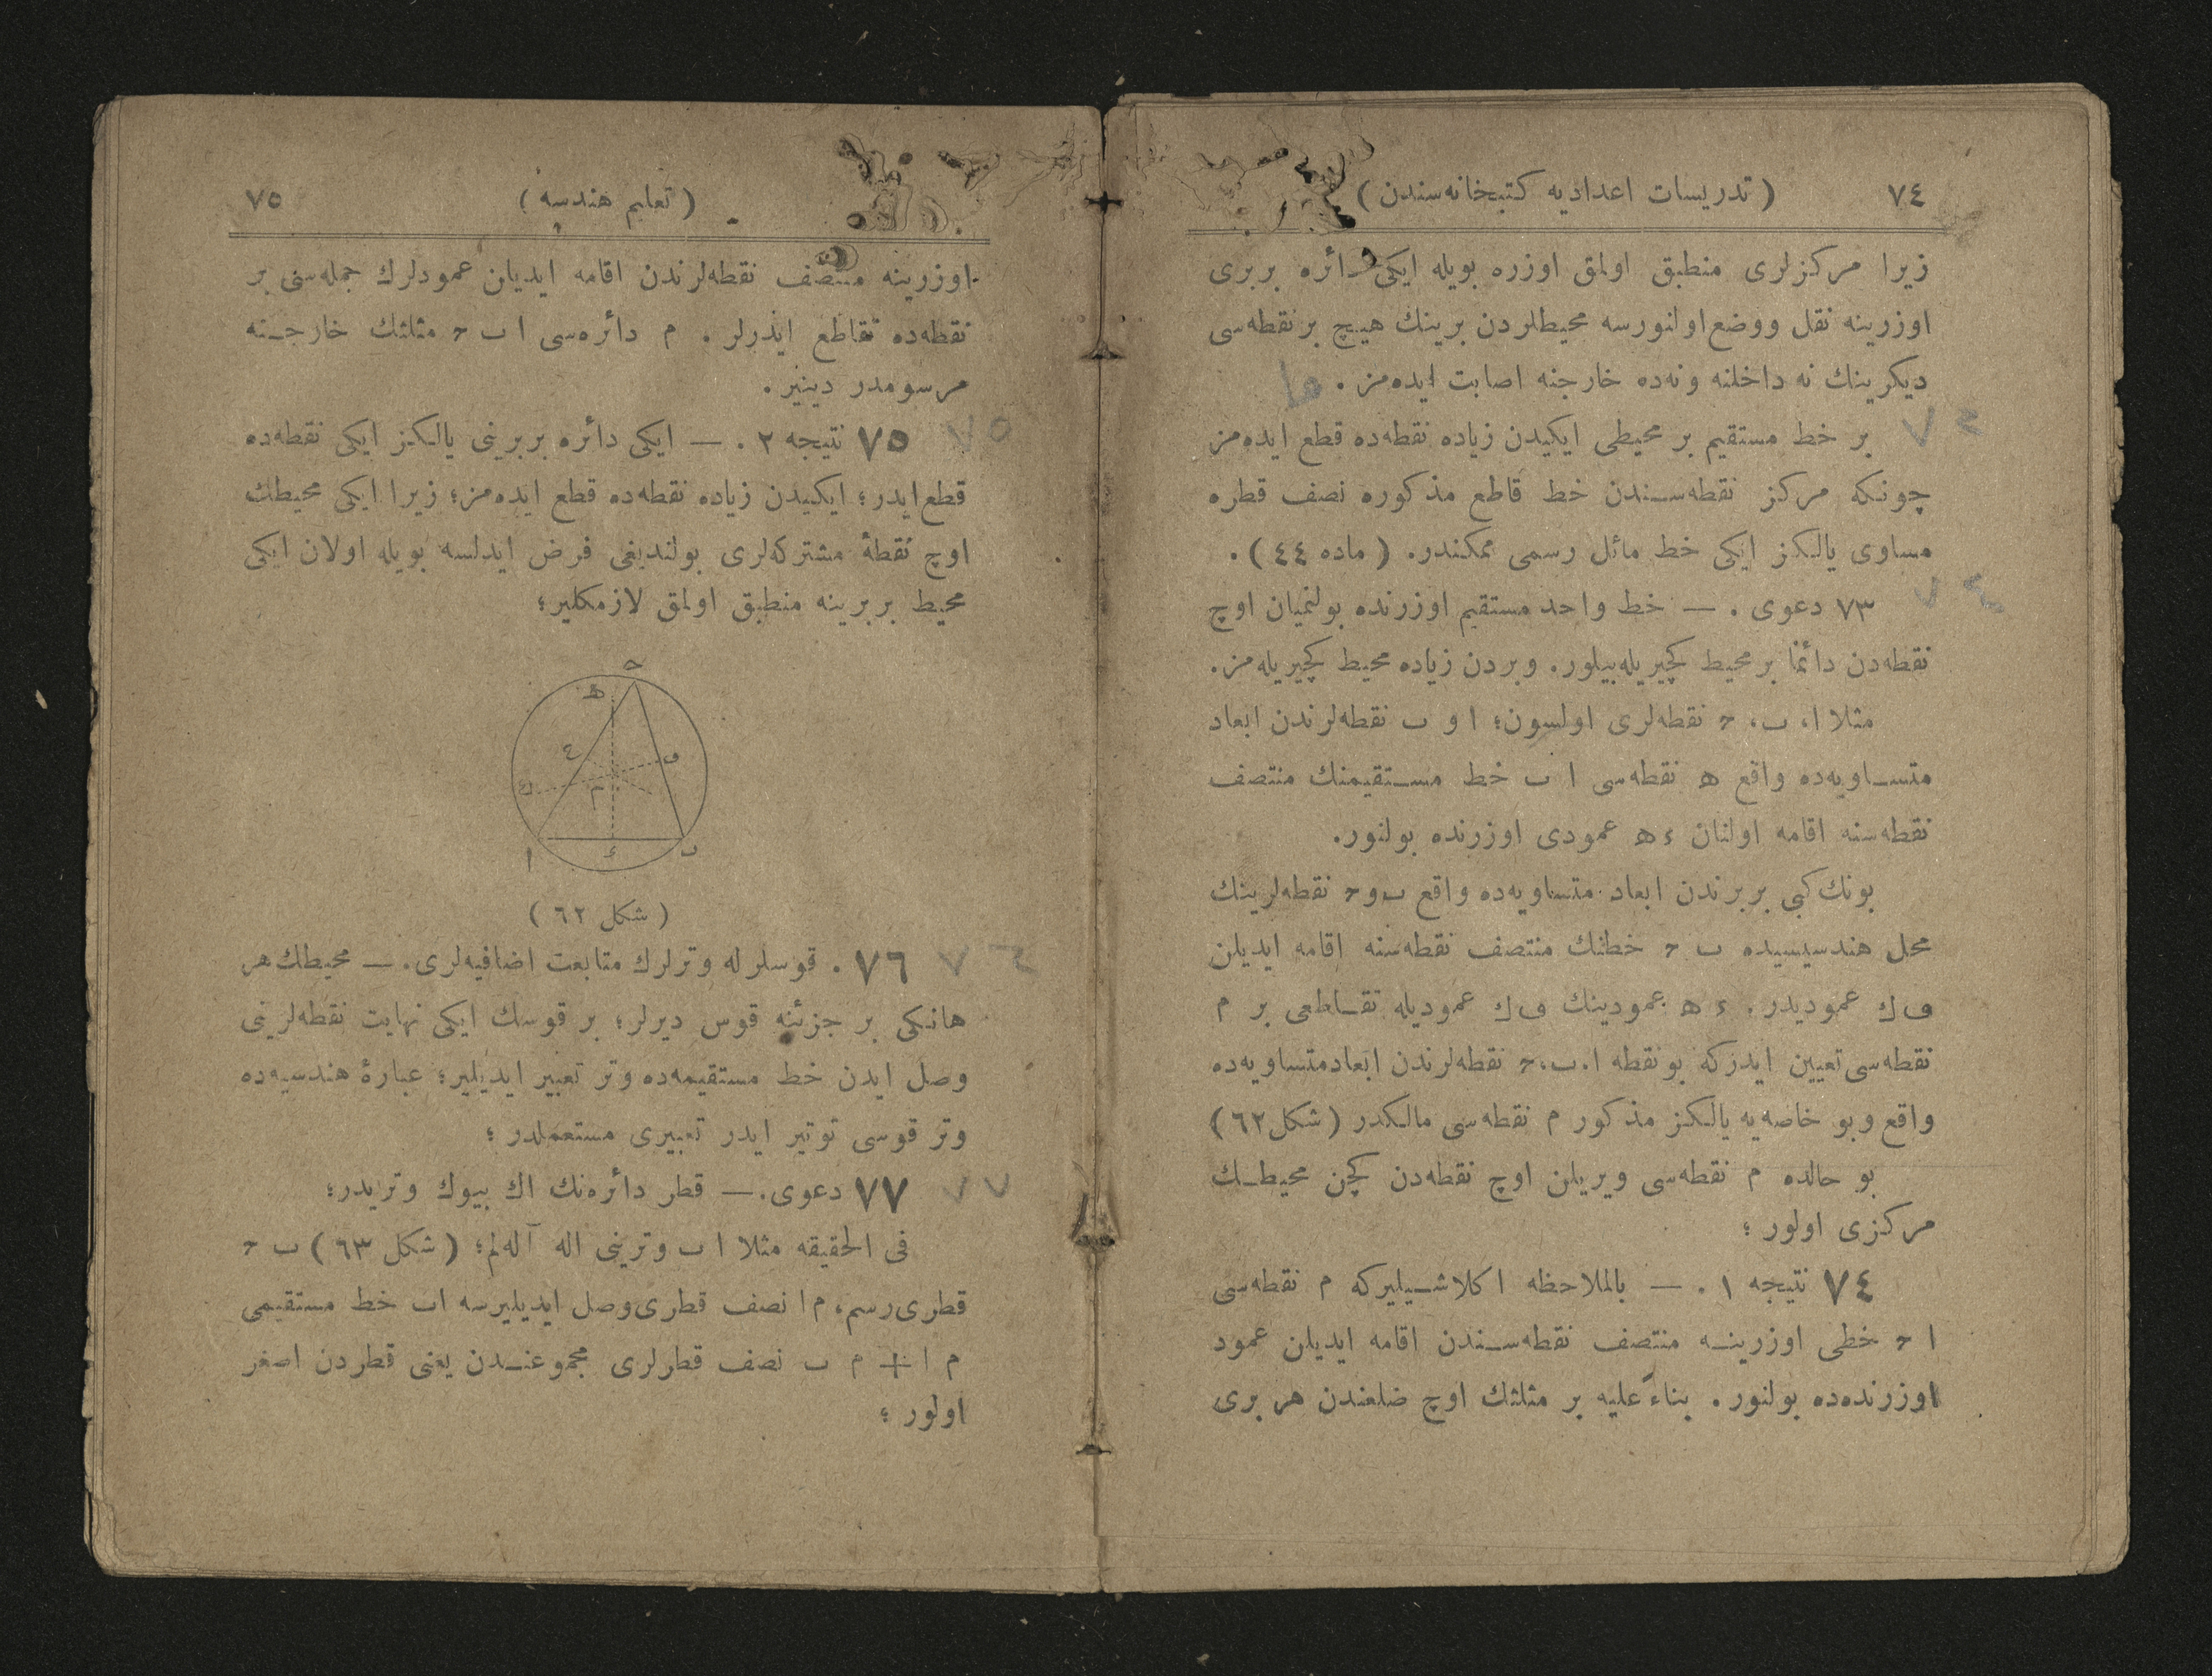 ٧٤ ( تدريسات اعداديه كتبخانه‌سندن )
زيرا مركزلرى منطبق اولمق اوزره بويله ايكى دائره بربرى
اوزرينه نقل ووضع اولنورسه محيطلردن برينك هيچ برنقطه‌سى
ديكرينك نه داخلنه ونه‌ده خارجنه اصابت ايده‌من .
بر خط مستقيم بر محيطى ايكيدن زياده نقطه‌ده قطع ايده‌من
چونكه مركز نقطه‌سندن خط قاطع مذكوره نصف قطره
مساوى يالكز ايكى خط مائل رسمى ممكندر. ( ماده ٤٤ ) .
٧٣ دعوى . — خط واحد مستقيم اوزرنده بولنميان اوچ
نقطه‌دن دائما بر محيط كچيريله‌بيلور. وبردن زياده محيط كچيريله‌من.
مثلا ا، ب، ح نقطه‌لرى اولسون؛ ا و ب نقطه‌لرندن ابعاد
متساويه‌ده واقع ه نقطه‌سى ا ب خط مستقيمنك منتصف
نقطه‌سنه اقامه اولنان ء ه عمودى اوزرنده بولنور.
بونك كبى بربرندن ابعاد متساويه‌ده واقع ب و ح نقطه‌لرينك
محل هندسيسيده ب ح خطنك منتصف نقطه‌سنه اقامه ايديلن
ف ك عموديدر. ء ه عمودينك ف ك عموديله تقاطعى بر م
نقطه‌سى تعيين ايدركه بو نقطه ا، ب، ح نقطه‌لرندن ابعاد متساويه‌ده
واقع وبو خاصه‌يه يالكز مذكور م نقطه‌سى مالكدر ( شكل ٦٢ )
بو حالده م نقطه‌سى ويريلن اوچ نقطه‌دن كچن محيطك
مركزى اولور ؛
٧٤ نتيجه ١ . — بالملاحظه اكلاشيليركه م نقطه‌سى
ا ح خطى اوزرينه منتصف نقطه‌سندن اقامه ايديلن عمود
اوزرنده‌ده بولنور. بناءً عليه بر مثلثك اوچ ضلعندن هر برى
( تعليم هندسه ) ٧٥
اوزرينه منتصف نقطه‌لرندن اقامه ايديلن عمودلرك جمله‌سى بر
نقطه‌ده تقاطع ايدرلر . م دائره‌سى ا ب ح مثلثك خارجنه
مرسومدر دينير .
٧٥ ٧٥ نتيجه ٢ . — ايكى دائره بربرينى يالكز ايكى نقطه‌ده
قطع ايدر؛ ايكيدن زياده نقطه‌ده قطع ايده‌من؛ زيرا ايكى محيطك
اوچ نقطهٔ مشتركه‌لرى بولنديغى فرض ايدلسه بويله اولان ايكى
محيط بربرينه منطبق اولمق لازمكلير؛
ح
ه
ع
ف
ك
م
ا
ء
ب
( شكل ٦٢ )
٧٦ ٧٦ . قوسلرله وترلرك متابعت اضافيه‌لرى. — محيطك هر
هانكى بر جزئنه قوس ديرلر؛ بر قوسك ايكى نهايت نقطه‌لرينى
وصل ايدن خط مستقيمه‌ده وتر تعبير ايديلير؛ عبارهٔ هندسيه‌ده
وتر قوسى توتير ايدر تعبيرى مستعملدر ؛
٧٧ ٧٧ دعوى. — قطر دائره‌نك اك بيوك وتريدر؛
فى الحقيقه مثلا ا ب وترينى اله آله‌لم؛ ( شكل ٦٣ ) ب ح
قطرى رسم، م ا نصف قطرى وصل ايديليرسه ا ب خط مستقيمى
م ا + م ب نصف قطرلرى مجموعندن يعنى قطردن اصغر
اولور ؛